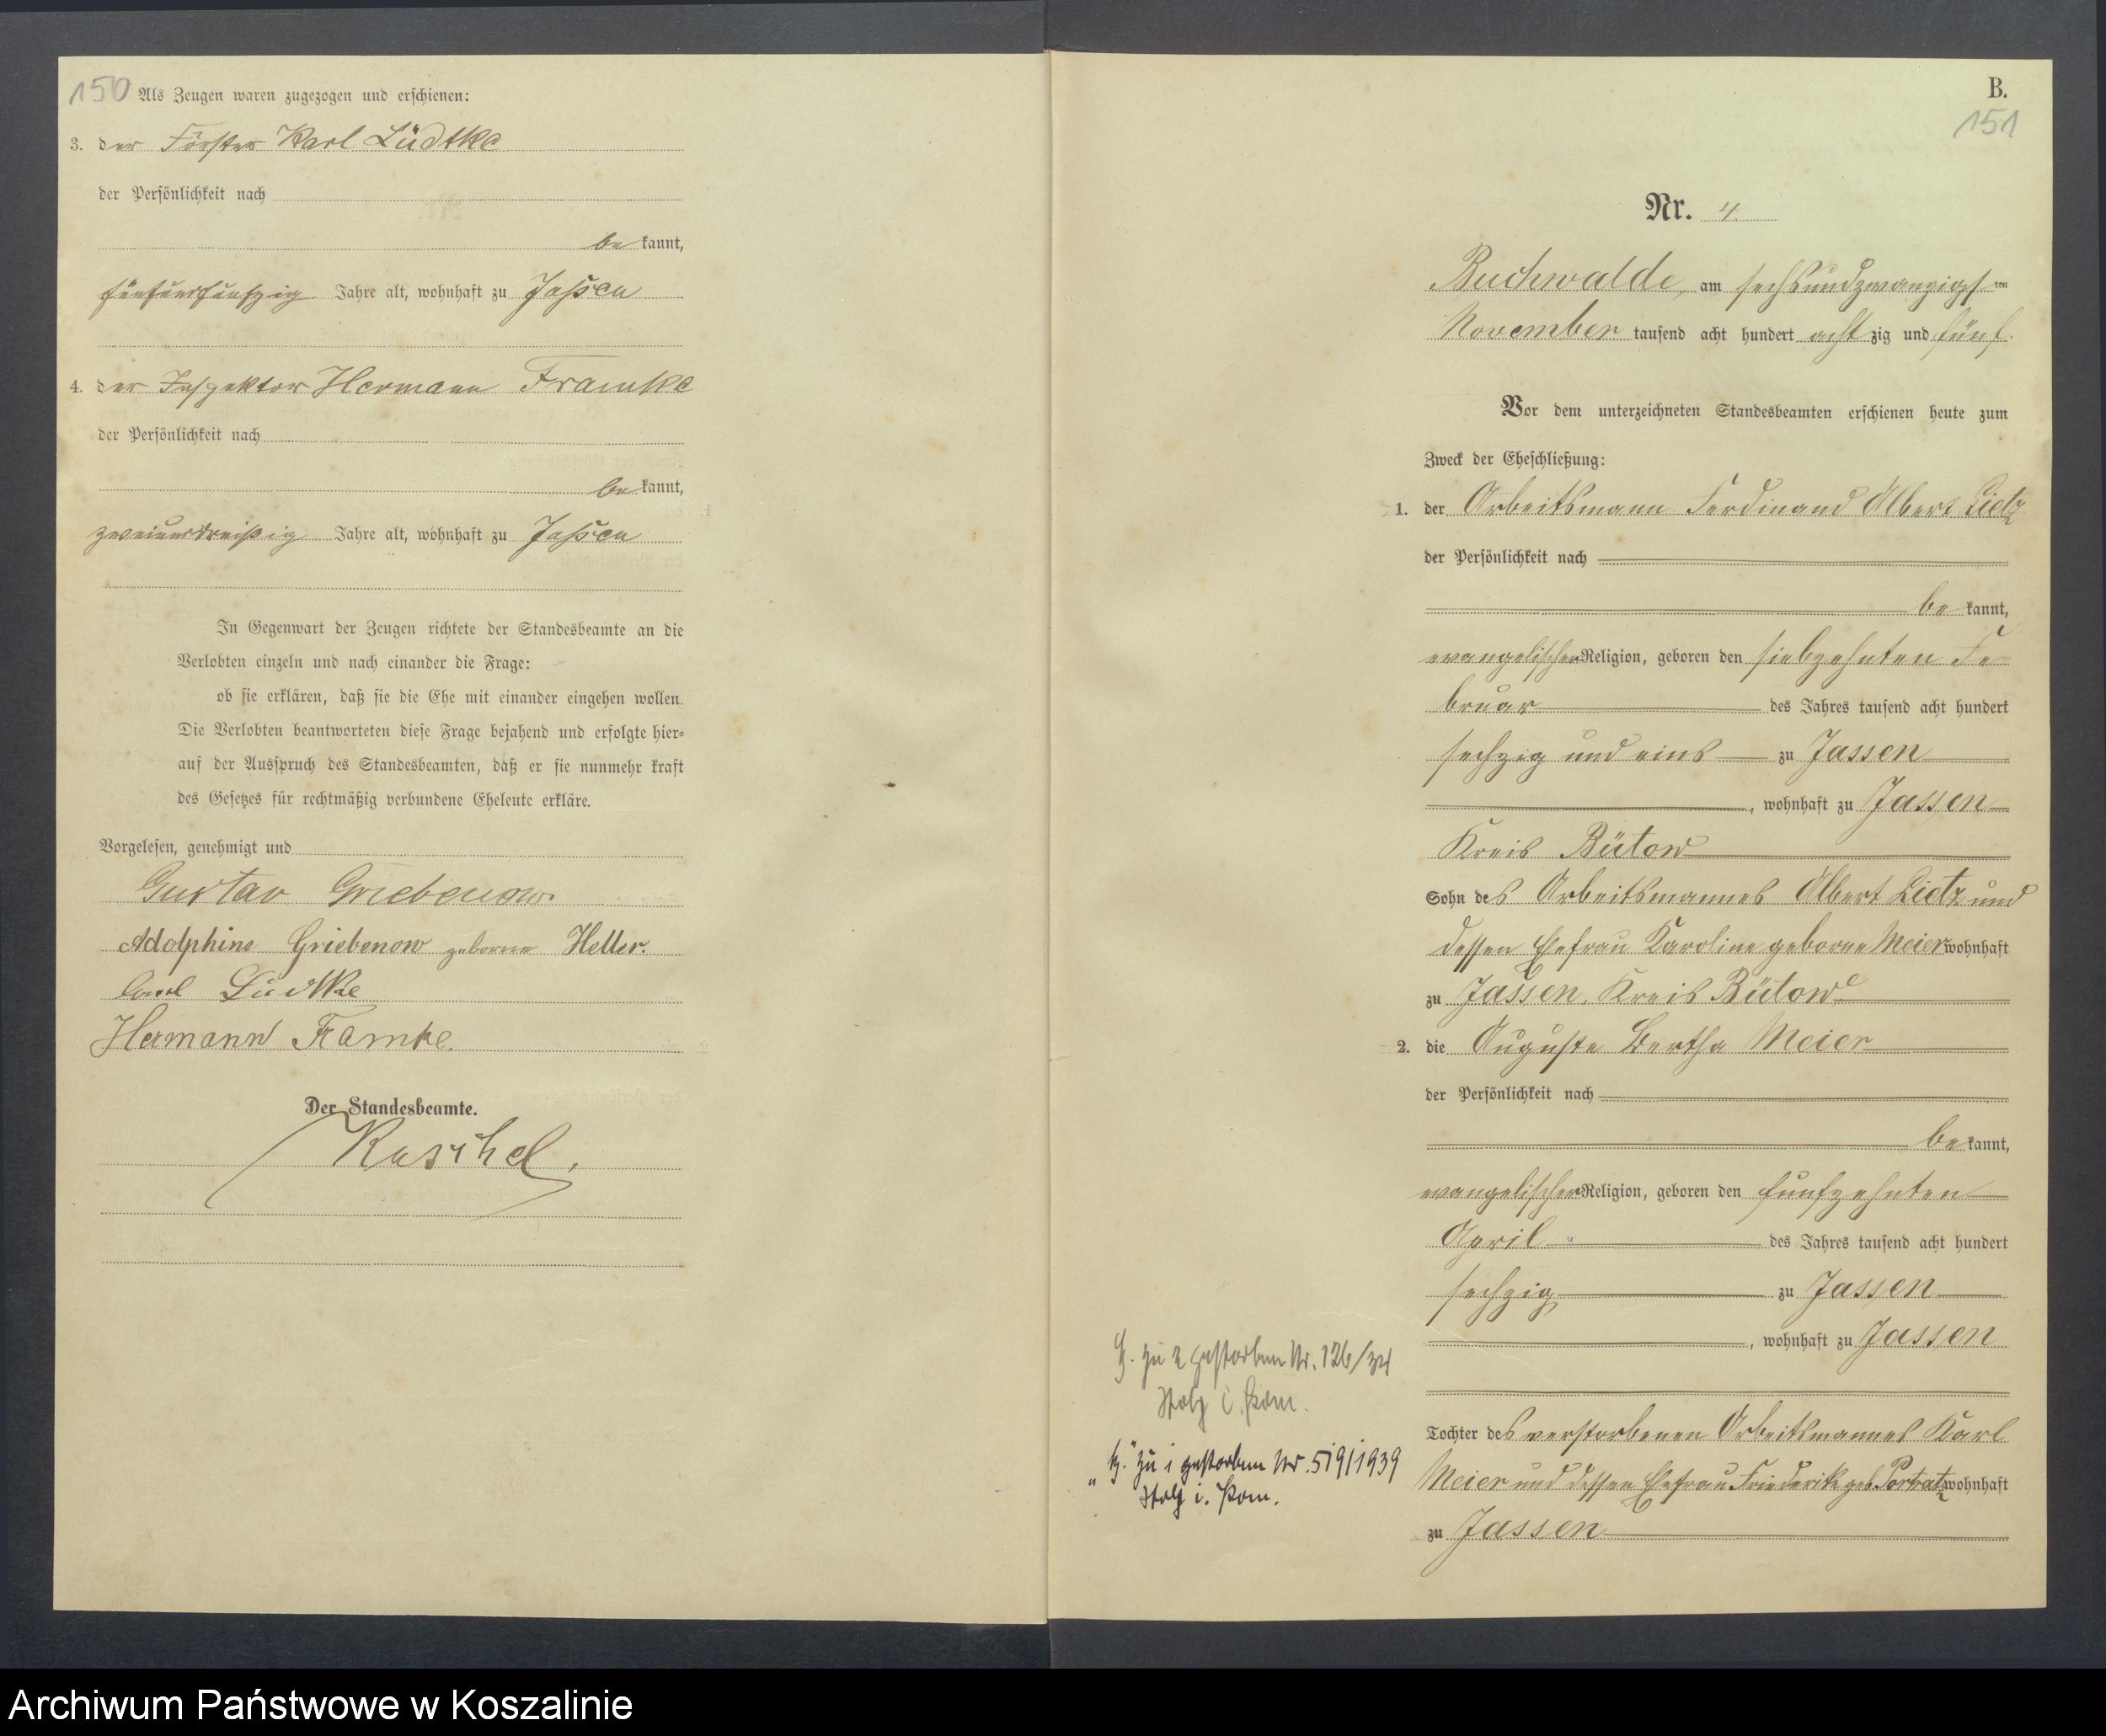 150
Als Zeugen waren zugezogen und erschienen:
3. der Förster Karl Lüdtke
der Persönlichkeit nach
be kannt,
fünfundfünfzig Jahre alt, wohnhaft zu Jassen
4. der Inspektor Hermann Framke
der Persönlichkeit nach
be kannt,
zweiunddreißig Jahre alt, wohnhaft zu Jassen
In Gegenwart der Zeugen richtete der Standesbeamte an die
Verlobten einzeln und nach einander die Frage:
ob sie erklären, daß sie die Ehe mit einander eingehen wollen.
Die Verlobten beantworteten diese Frage bejahend und erfolgte hier-
auf der Ausspruch des Standesbeamten, daß er sie nunmehr kraft
des Gesetzes für rechtmäßig verbundene Eheleute erkläre.
Vorgelesen, genehmigt und
Gustav Griebenow.
Adolphine Griebenow geborene Heller.
Carl Lüdtke
Hermann Framke.
Der Standesbeamte.
Raschel.
B.
151
Nr. 4.
Buchwalde, am sechsundzwanzigsten
November tausend acht hundert acht zig und fünf.
Vor dem unterzeichneten Standesbeamten erschienen heute zum
Zweck der Eheschließung:
1. der Arbeitsmann Ferdinand Albert Lietz
der Persönlichkeit nach
be kannt,
evangelischer Religion, geboren den siebzehnten Fe-
bruar des Jahres tausend acht hundert
sechzig und eins zu Jassen
, wohnhaft zu Jassen
Kreis Bütow
Sohn des Arbeitsmannes Albert Lietz und
dessen Ehefrau Karoline geborne Meier wohnhaft
zu Jassen, Kreis Bütow
2. die Auguste Bertha Meier
der Persönlichkeit nach
be kannt,
evangelischer Religion, geboren den funfzehnten
April des Jahres tausend acht hundert
sechzig zu Jassen
, wohnhaft zu Jassen
Tochter des verstorbenen Arbeitsmannes Karl
Meier und dessen Ehefrau Friederike geb. Portratz wohnhaft
zu Jassen
H. zu 2 gestorben Nr. 126/34
Stolp i. Pom.
"H." zu 1 gestorben Nr. 519/1939
Stolp i. Pom.
Archiwum Państwowe w Koszalinie